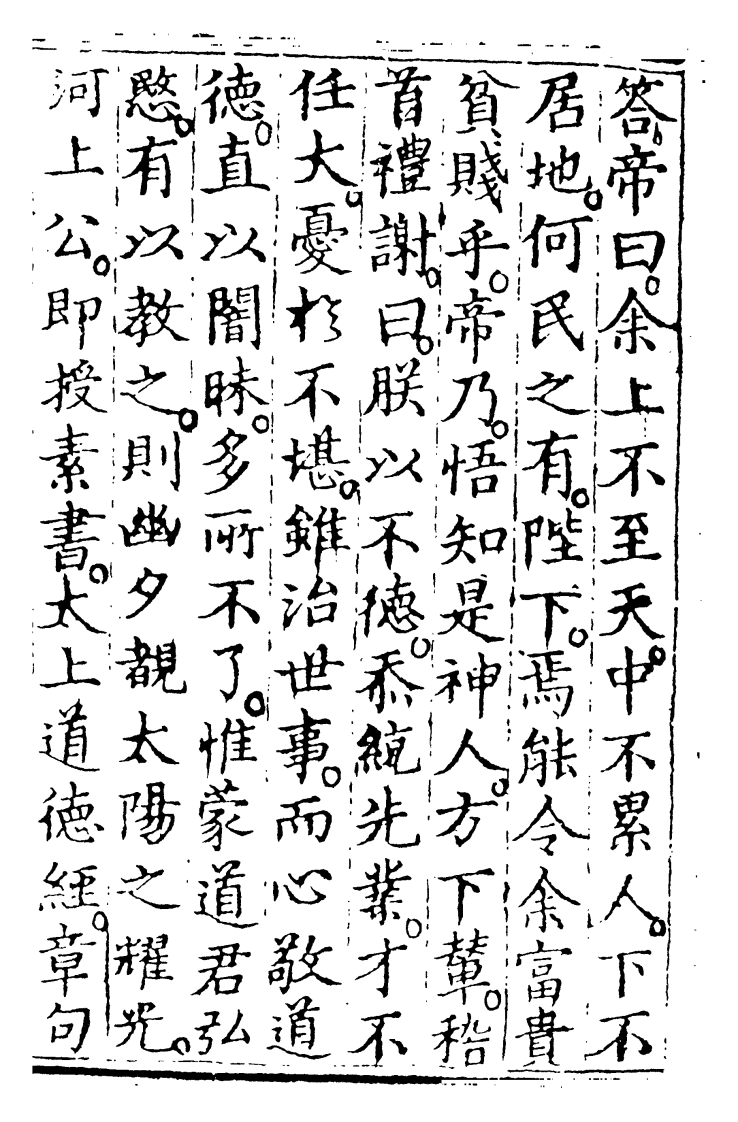 答。帝曰。余上不至天。中不累人。下不
居地。何民之有。陛下。焉能令余富貴
貧賤乎。帝乃。悟知是神人。方下輦。稽
首禮謝。曰。朕以不德。忝統先業。才不
任大。憂於不堪。雖治世事。而心敬道
德。直以闇昧。多所不了。惟蒙道君弘
愍。有以教之。則幽夕覩太陽之耀光。
河上公。即授素書。太上道德經。章句